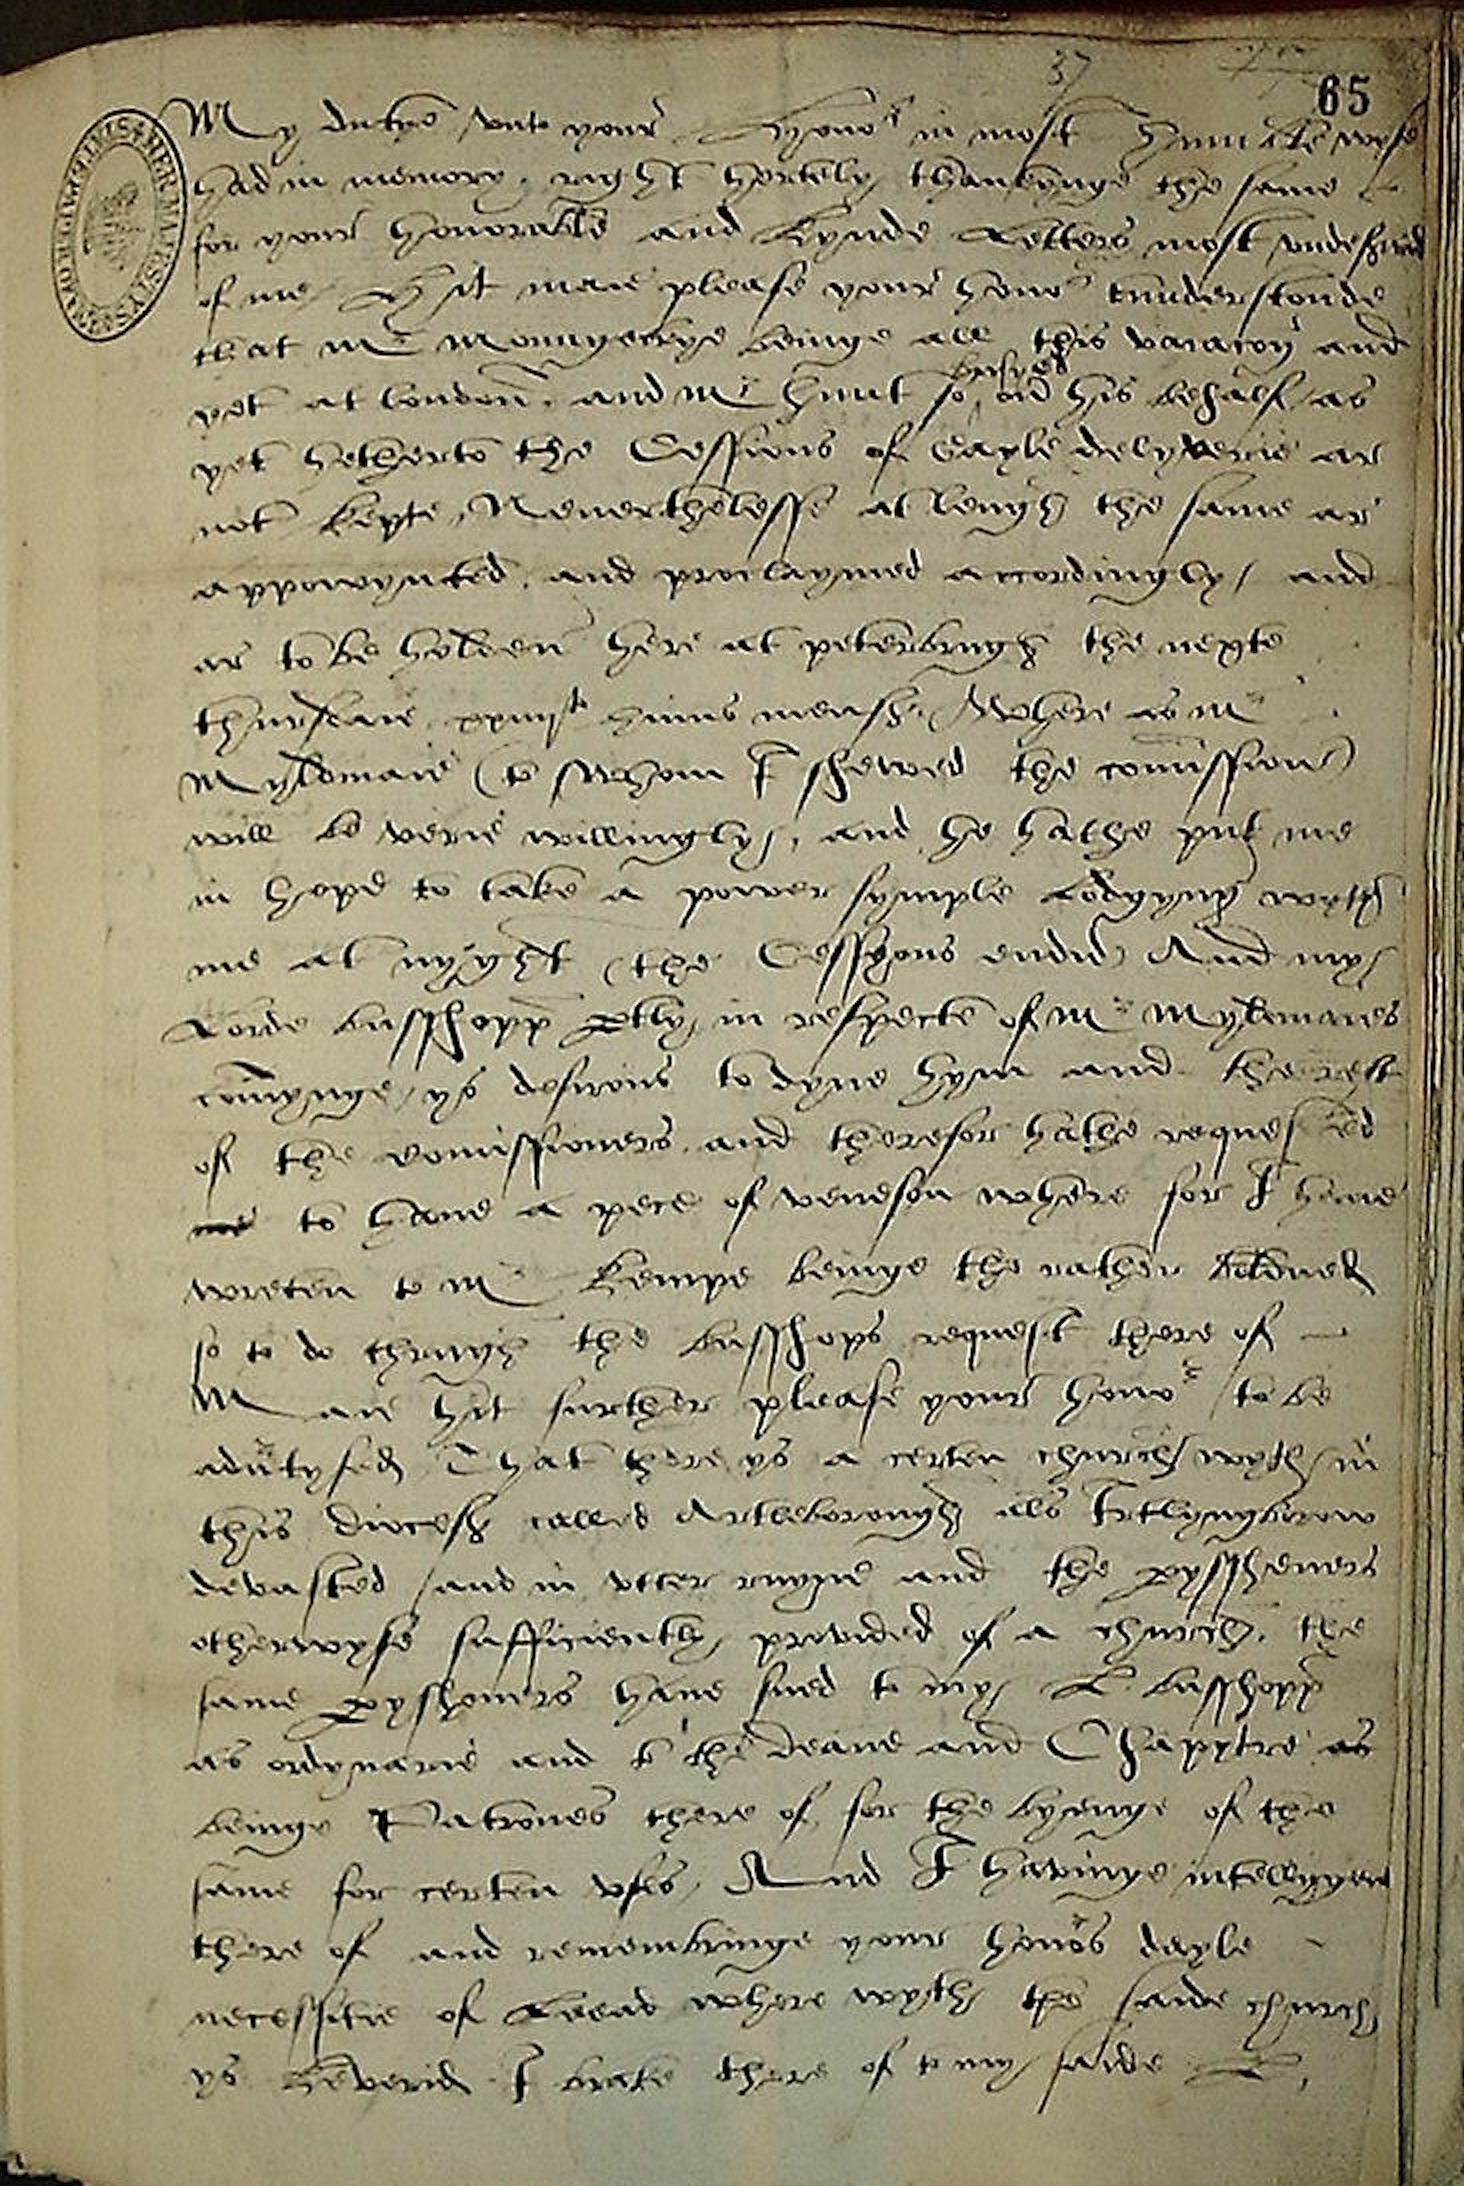 37
65
My dutye vnto your Hono^r in most humble wyse
had in memory, right hertely thankynge the same
for your honorable and kynde Letters most vndeserued
of me, Hyt maie please your hono^r tunderstonde
that M^r Mountgerrye beinge all this vacacon and
yet at london, and M^r Hunt so busyed on his behalf, as
yet hetherto the Cessions of Gayle delyverie ar
not kepte, Neuerthelesse at lengh the same ar
appowynted, and proclaymed accordingly, and
ar to be holden here at peterbrugh the nexte
thursdaie xxiiij^to huius mensis, Where as M^r
Myldmaie (to Whom I shewed the comission)
will be verie willingly, and he hathe put me
in hope to take a power symple Lodgyng wyth
me at nyght (the Cessyons endid) And my
Lorde busshopp ptly in respecte of M^r Myldmaies
comynge, ys desirous to dyne hym and the rest
of the comissioners, and therefor hathe requested
me to haue a pece of veneson where for I haue
wreten to M^r Kempe beinge the rather
so to do thrugh the busshops request there of
Maie hit further please your hono^r to be
adutysed, That there ys a certen church wyth in
this dioces called Artleborough als Irtlyngborow
devasted and in vtter ruyne and the pyssheners
otherwyse sufficiently provided of a church, the
same pyshoners haue sued to my L busshopp
as ordynarie and to the deane and Chapytre as
beinge Patrones there of, for the byenge of the
same for certen vses, And I havinge intelligyens
there of and remembringe your honors dayle
necessitie of Leead where wyth the saide church
ys keverid I brake there of to my saide L,